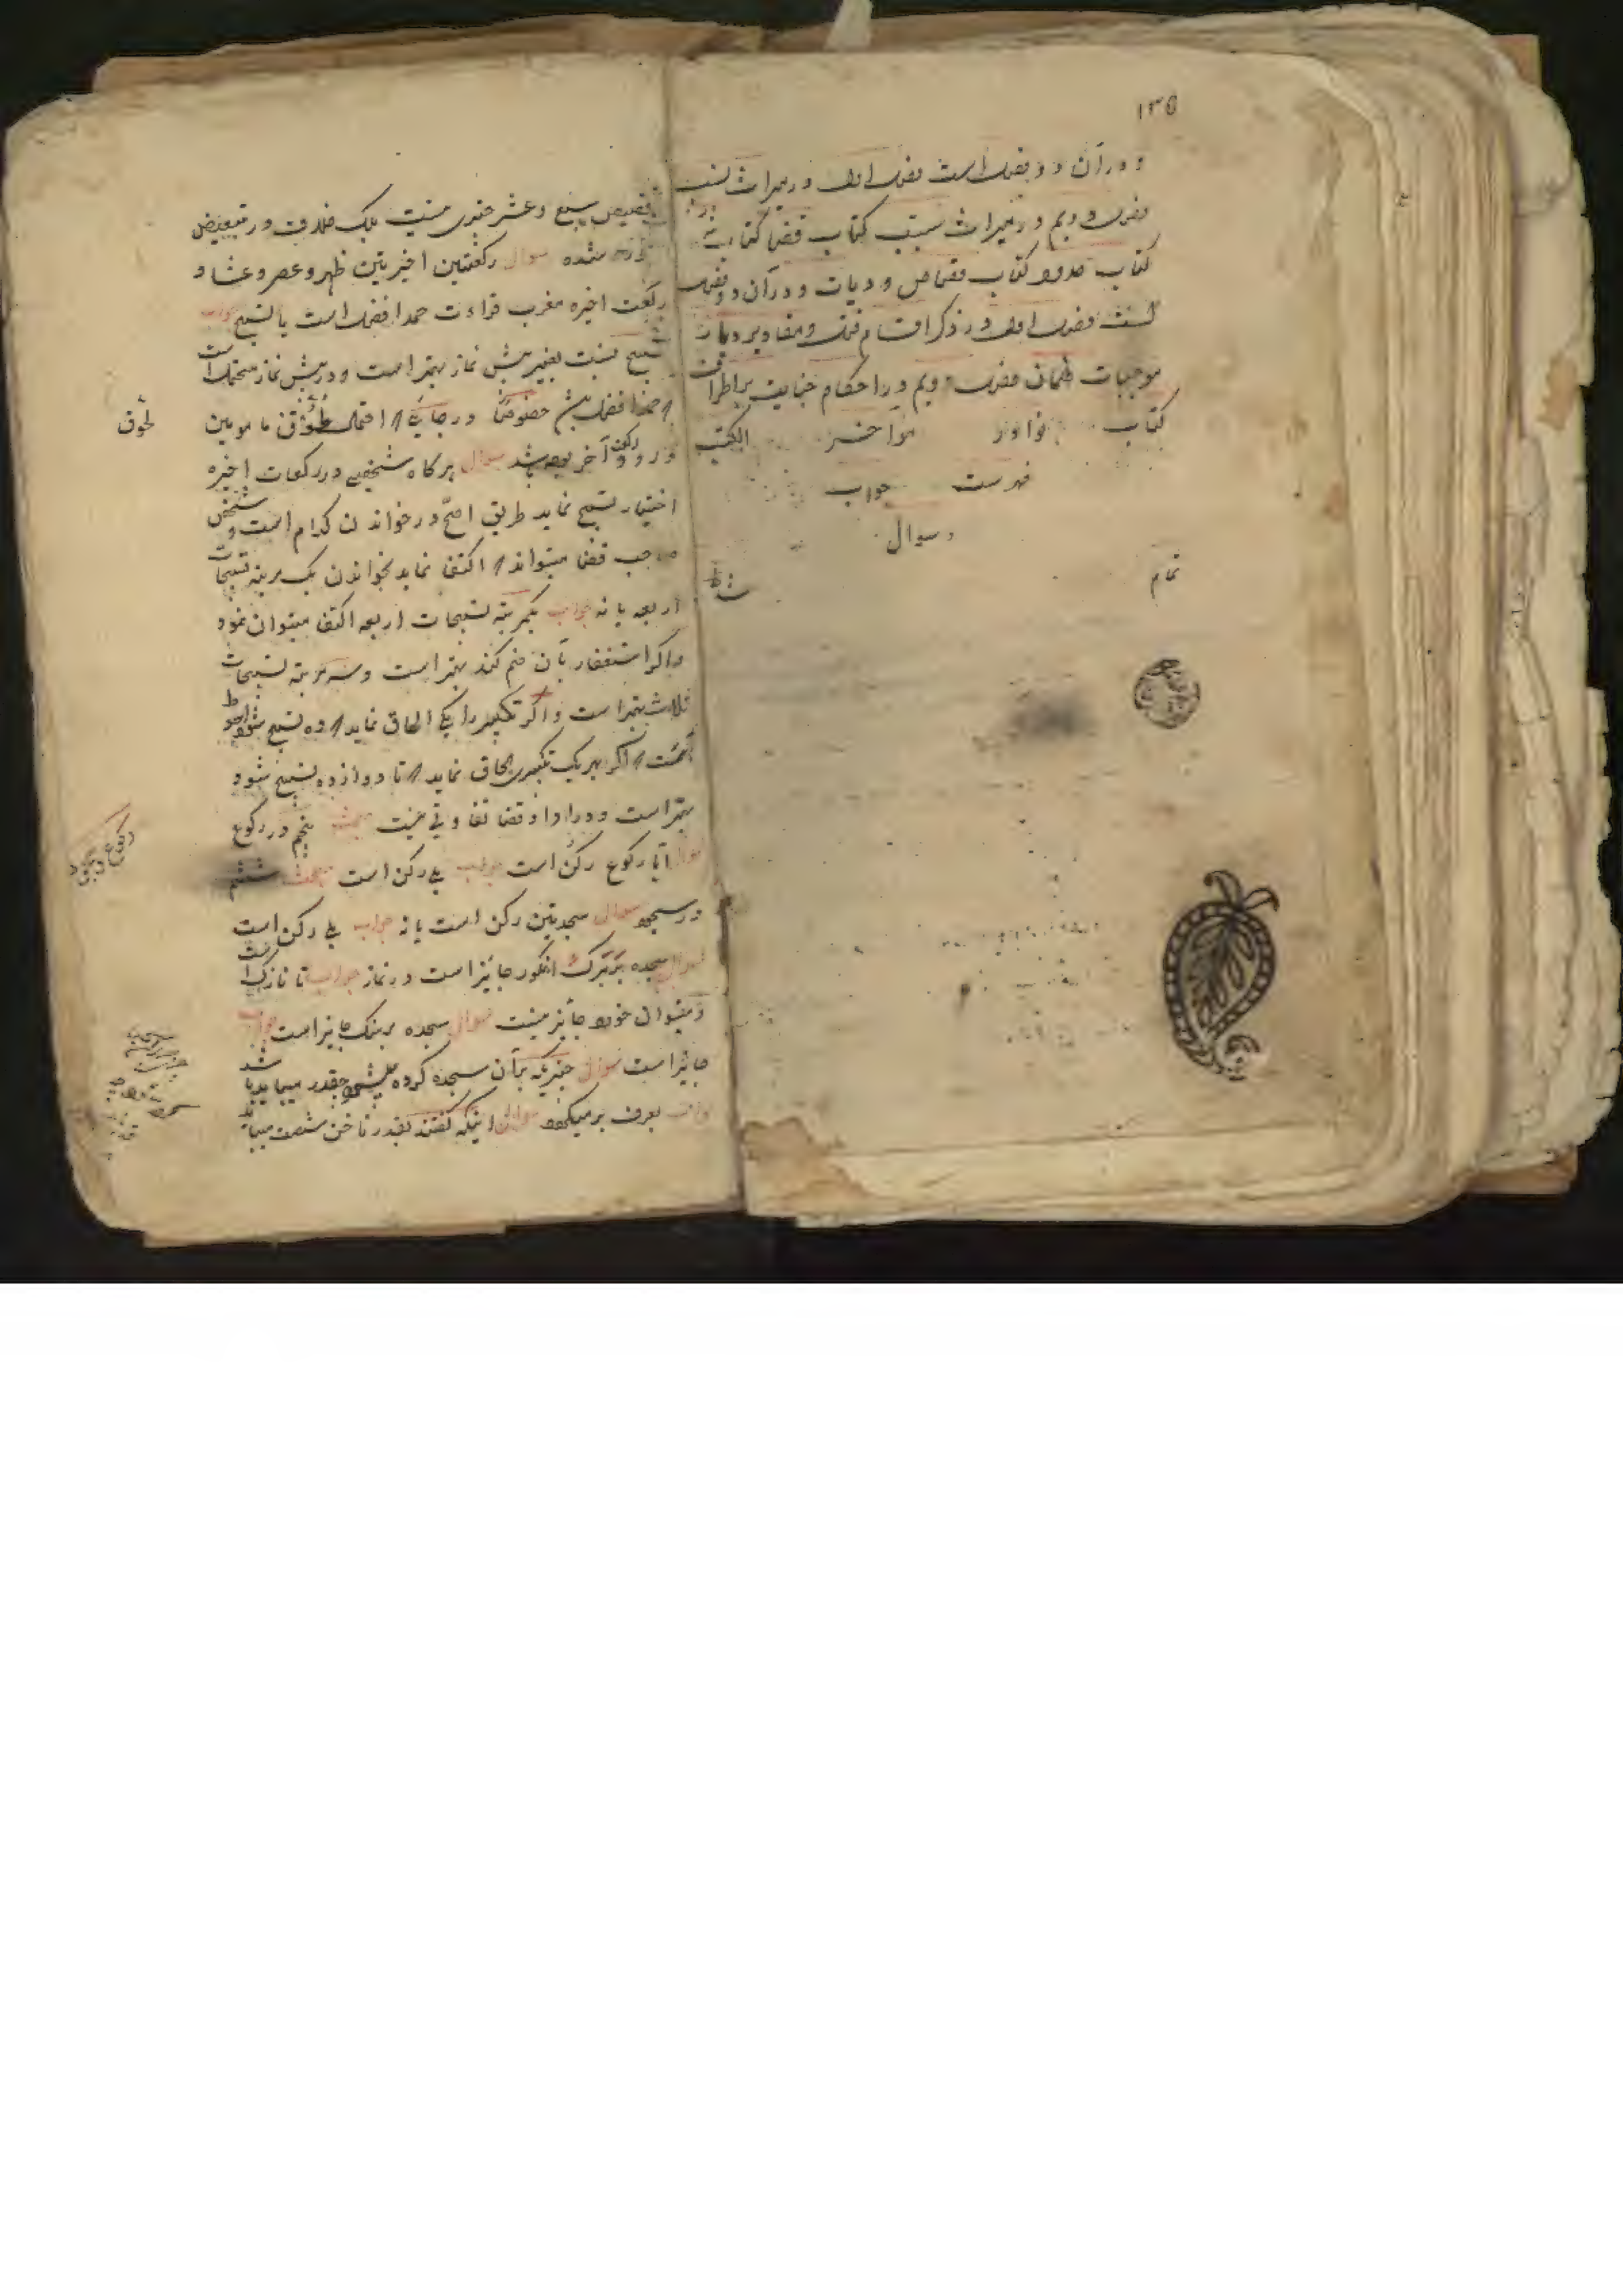 ۱۳۵
و در آن دو فصل است فصل اول در میراث نسب
فصل دویم در میراث سبب کتاب قضا کتاب
کتاب حدود کتاب قصاص و دیات و در آن دو فصل
است فصل اول در ذکر اقسام قتل و مقادیر دیات
موجبات ضمان فصل دویم در احکام جنایت بر اطراف
کتاب نوادر آخر الکتب
فهرست جواب
و سوال
تمام
سبع و عشر چیزی نیست بلکه خلاف در تبعیض
شده سوال رکعتین اخیرتین ظهر و عصر و عشا و
رکعت اخیره مغرب قراءت حمد افضل است یا تسبیح جواب
تسبیح نسبت بغیر پیش نماز بهتر است و در پیش نماز محتمل است
که حمد افضل خصوصا در جائی که احتمال لحوق مامومین
در دو رکعت آخر باشد سوال هرگاه شخصی در رکعات اخیره
اختیار تسبیح نماید طریق اصح در خواندن کدام است و شخص
صاحب قضا میتواند که اکتفا نماید بخواندن یک مرتبه تسبیحات
اربعه یا نه جواب بیکمرتبه تسبیحات اربعه اکتفا میتوان نمود
و اگر استغفار بآن ضم کند بهتر است و سه مرتبه تسبیحات
ثلاث بهتر است و اگر تکبیر را الحاق نماید که ده تسبیح شود احوط
است که اگر بهر یک تکبیری الحاق نماید که تا دوازده تسبیح شود
بهتر است و در ادا و قضا تفاوتی نیست مبحث پنجم در رکوع
سوال آیا رکوع رکن است جواب بلی رکن است مبحث ششم
در سجود سوال سجدتین رکن است یا نه جواب بلی رکن است
سوال سجده بر برگ انگور جائز است در نماز جواب تا نازک است
و میتوان خورد جائز نیست سوال سجده بر سنگ جایز است جواب
جائز است سوال چیزیکه بر آن سجده کرده میشود چقدر میباید باشد
جواب بعرف بر میگردد سوال اینکه گفتند بقدر ناخن شصت میباید
لحوق
رکوع و سجود